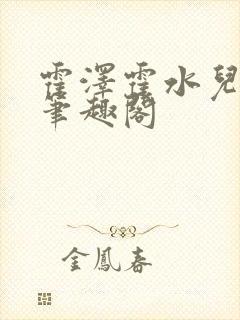 霍澤霍水兒
筆趣閣
金鳳春